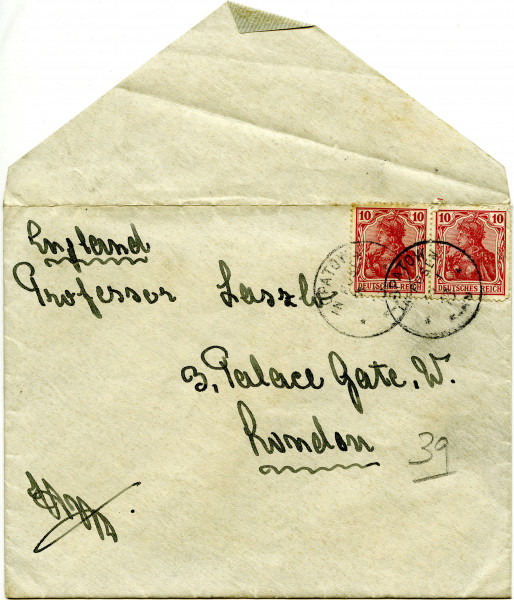 10 10 10 10
DEUTSCHES REICH DEUTSCHES REICH
England
Professor Laszlo
3, Palace Gate, W.
London
39